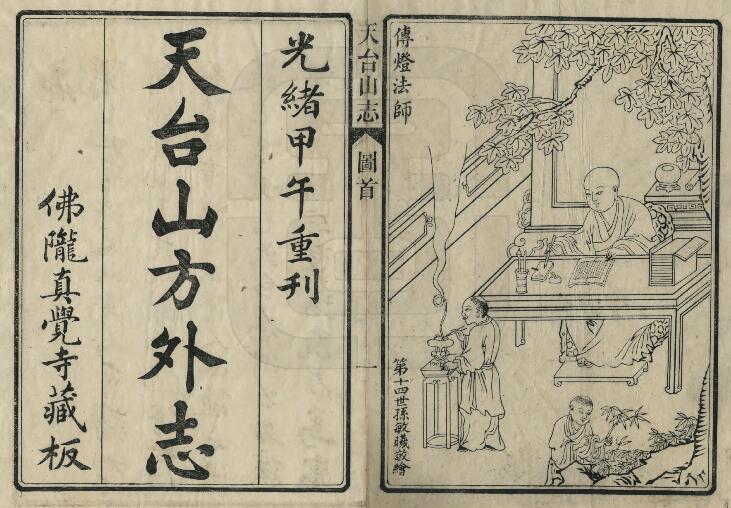 傳燈法師
第十四世孫敏曦敬繪
天台山志
圖首
一
光緒甲午重刊
天台山方外志
佛隴真覺寺藏板